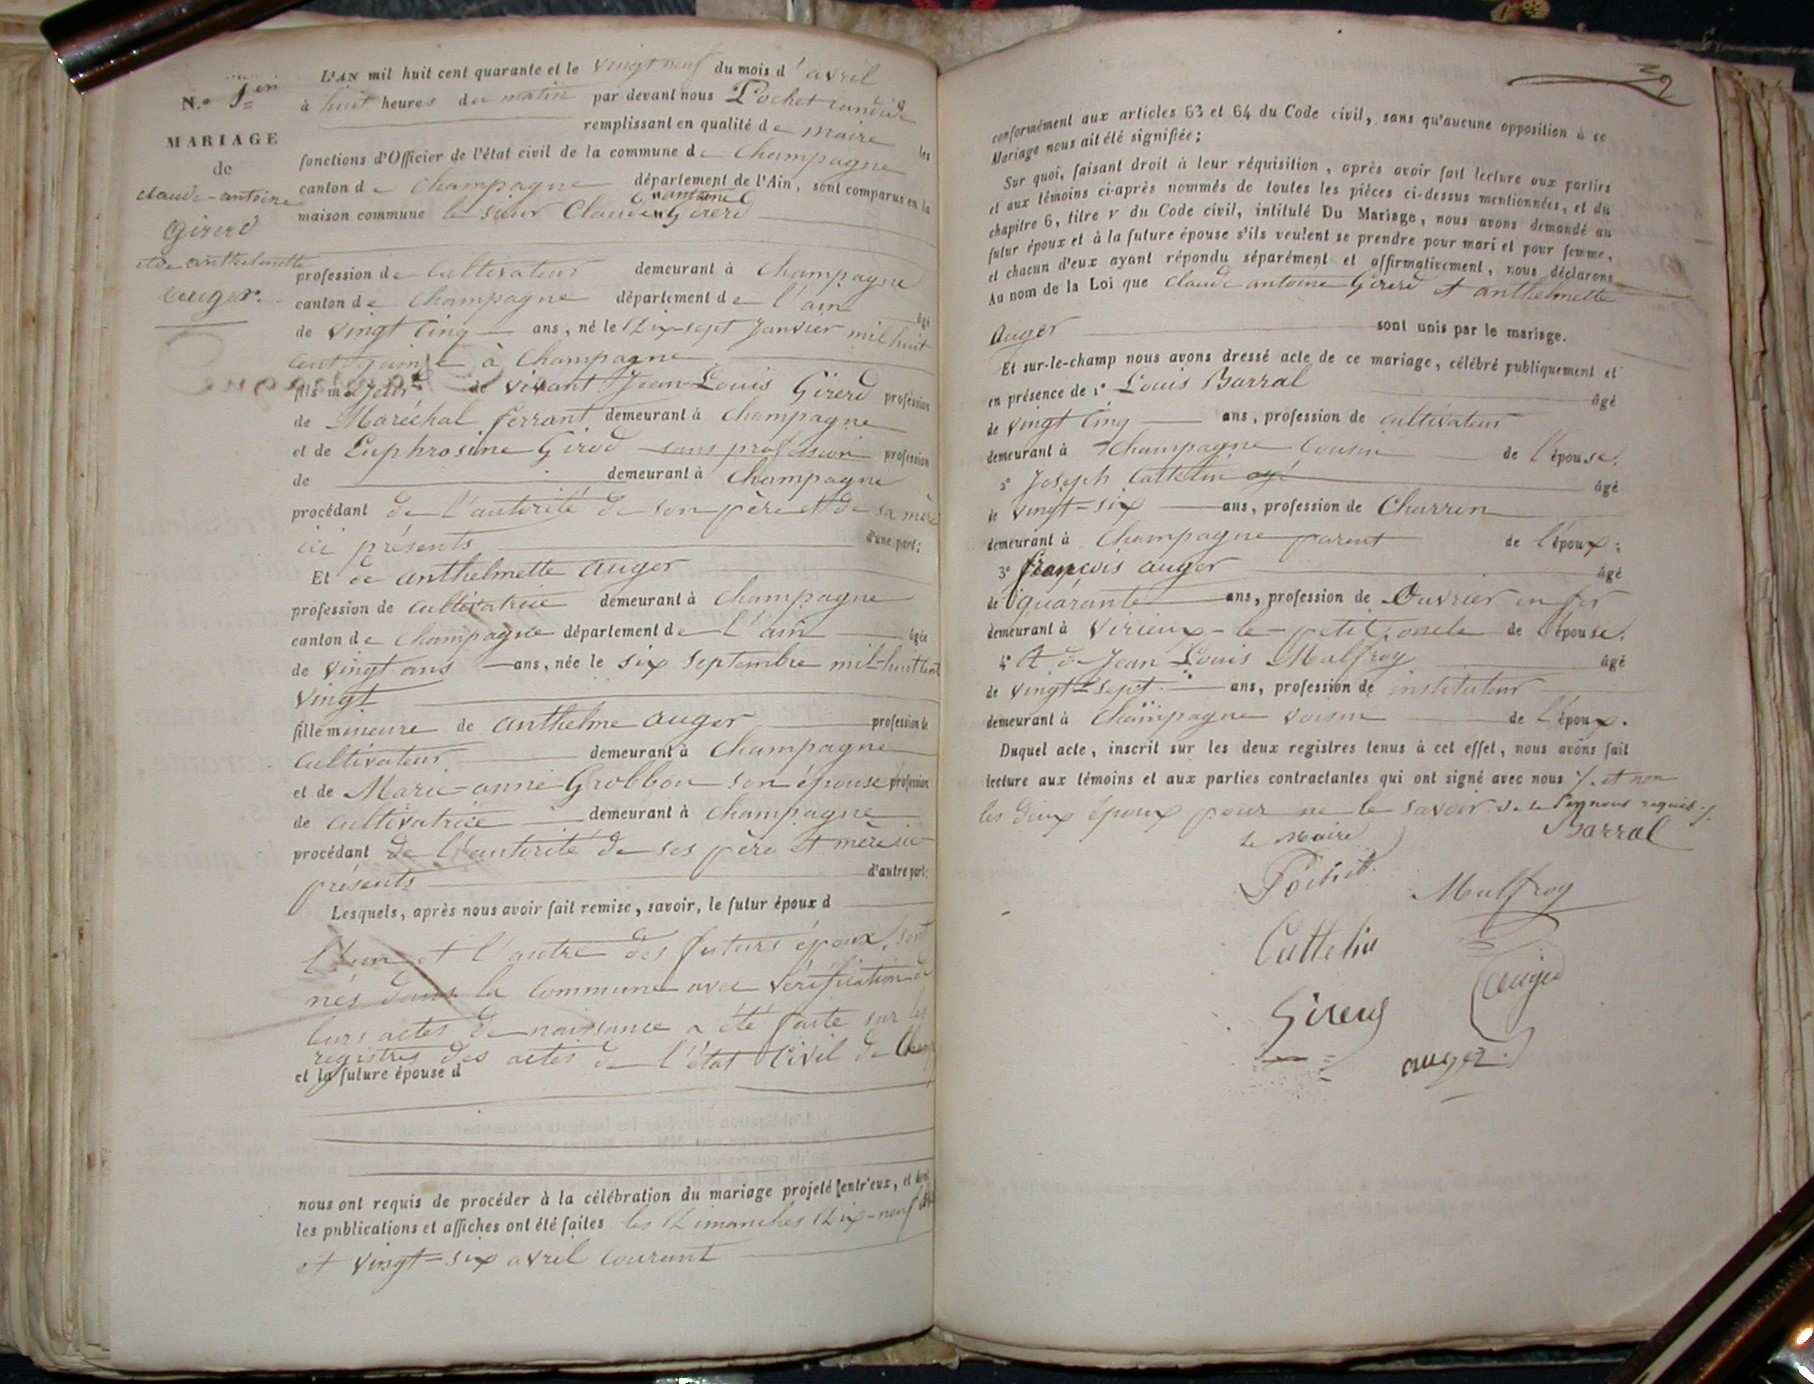 N.o 1er
MARIAGE
de
claude-antoine
Girerd
et de anthelmette
auger.
L'AN mil huit cent quarante et le vingt neuf du mois d'avril
à huit heures du matin par devant nous Pochet
remplissant en qualité de maire les
fonctions d'Officier de l'état civil de la commune de Champagne
canton de Champagne département de l'Ain, sont comparus en la
maison commune le sieur Claude antoine Girerd
profession de cultivateur demeurant à Champagne
canton de Champagne département de l'ain âgé
de vingt cinq ans, né le Dix-sept Janvier mil huit
cent quinze à Champagne
fils de vivant Jean-Louis Girerd profession
de Maréchal ferrant demeurant à Champagne
et de Euphrosine Girod sans profession profession
de demeurant à Champagne
procédant de l'autorité de son père et de sa mère
ici présents d'une part;
Et de anthelmette auger
profession de cultivatrice demeurant à Champagne
canton de Champagne département de l'ain âgée
de vingt ans ans, née le six septembre mil-huit cent
vingt
fille mineure de anthelme auger profession de
cultivateur demeurant à Champagne
et de Marie-anne Grobbon son épouse profession
de cultivatrice demeurant à Champagne
procédant de l'autorité de ses père et mère ici
présents d'autre part;
Lesquels, après nous avoir fait remise, savoir, le futur époux d
l'un et l'autre des futurs époux, sont
nés dans la commune avec vérification de
leurs actes de naissance a été faite sur les
registres des actes de l'état civil de Champ
et la future épouse d
nous ont requis de procéder à la célébration du mariage projeté entr'eux, et dont
les publications et affiches ont été faites les Dimanches Dix-neuf
et vingt-six avril courant
32
conformément aux articles 63 et 64 du Code civil, sans qu'aucune opposition à ce
Mariage nous ait été signifiée;
Sur quoi, faisant droit à leur réquisition, après avoir fait lecture aux parties
et aux témoins ci-après nommés de toutes les pièces ci-dessus mentionnées, et du
chapitre 6, titre v du Code civil, intitulé Du Mariage, nous avons demandé au
futur époux et à la future épouse s'ils veulent se prendre pour mari et pour femme,
et chacun d'eux ayant répondu séparément et affirmativement, nous déclarons
Au nom de la Loi que claude antoine Girerd et anthelmette
Auger sont unis par le mariage.
Et sur-le-champ nous avons dressé acte de ce mariage, célébré publiquement et
en présence de 1° Louis Barral âgé
de vingt cinq ans, profession de cultivateur
demeurant à Champagne cousin de l'épouse.
2° Joseph Cattelin agé âgé
de vingt-six ans, profession de Charron
demeurant à Champagne parent de l'époux;
3° françois auger âgé
de quarante ans, profession de Ouvrier en fer
demeurant à Virieux-le-petit, oncle de l'épouse.
4° Et de Jean Louis Malfroy âgé
de vingt-sept ans, profession de instituteur
demeurant à Champagne voisin de l'époux.
Duquel acte, inscrit sur les deux registres tenus à cet effet, nous avons fait
lecture aux témoins et aux parties contractantes qui ont signé avec nous et non
les deux époux pour ne le savoir de ce enquis requis
Le Maire Barral
Pochet Malfroy
Cattelin
auger
Girerd
auger